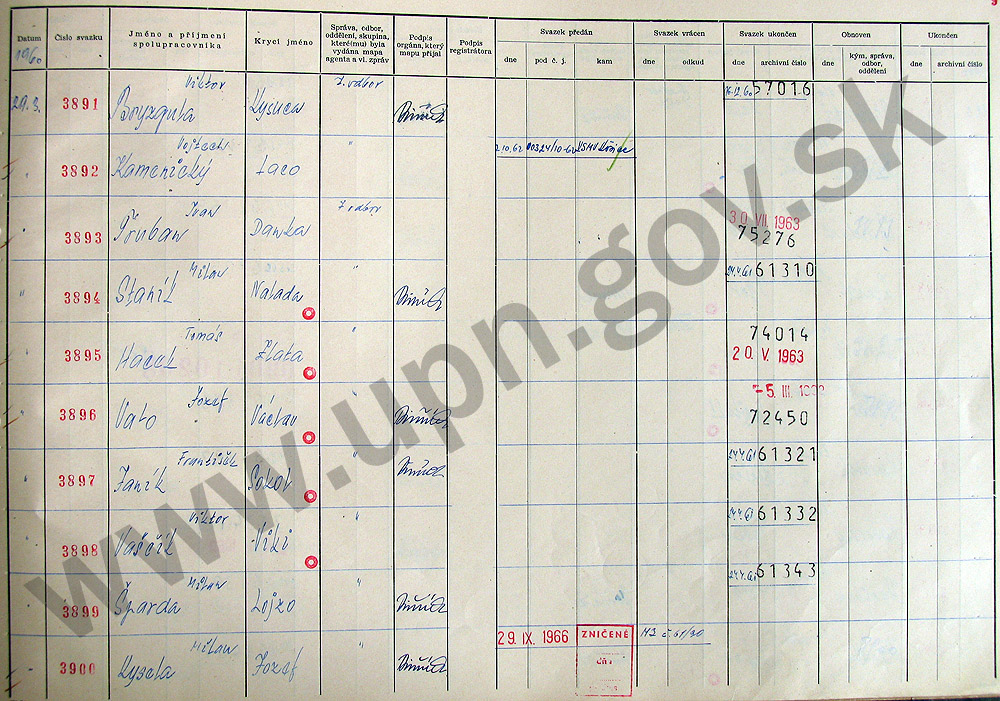 Datum
1960
Číslo svazku
Jméno a příjmení
spolupracovníka
Krycí jméno
Správa, odbor,
oddělení, skupina,
které(mu) byla
vydána mapa
agenta a vl. zpráv
Podpis
orgána, který
mapu přijal
Podpis
registrátora
Svazek předán
dne
pod č. j.
kam
Svazek vrácen
dne
odkud
Svazek ukončen
dne
archivní číslo
Obnoven
dne
kým, správa,
odbor,
oddělení
Ukončen
dne
archivní číslo
29.3. 3891 Viktor Kysuca 7. odbor 57016
3892 Vojtech Kamenický Laco 2.10.62
3893 Ivan Pruban Danka 7. odbor 30 VII. 1963
75276
3894 Milan Staník Nalada 24.4.61 61310
3895 Tomáš Hacek Zlata 74014
20. V. 1963
3896 Jozef Valo Václav -5. III.
72450
3897 František Janík Sokol 24.4.61 61321
3898 Viktor Vaščík Viki 24.4.61 61332
3899 Milan Šparda Lojzo 24.4.61 61343
3900 Milan Kysela Jozef 29. IX. 1966 ZNIČENÉ
www.upn.gov.sk